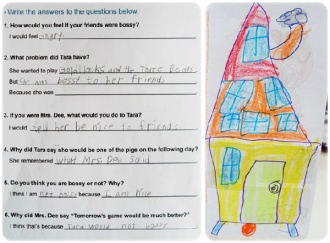 Write the answers to the questions below
1. How would you feel if your friends were bossy?
I would feel angry.
2. What problem did Tara have?
She wanted to play goldilocks and the Tare Bears
But She was bossy to her friends
Because she was
3. If you were Mrs. Dee, what would you do to Tara?
I would tell her be nice to friends
4. Why did Tara say she would be one of the pigs on the following day?
She remembered what Mrs Dee said
5. Do you think you are bossy or not? Why?
I think I am not bossy because I am nice
6. Why did Mrs. Dee say "Tomorrow's game would be much better?"
I think that's because Tara would not bossy